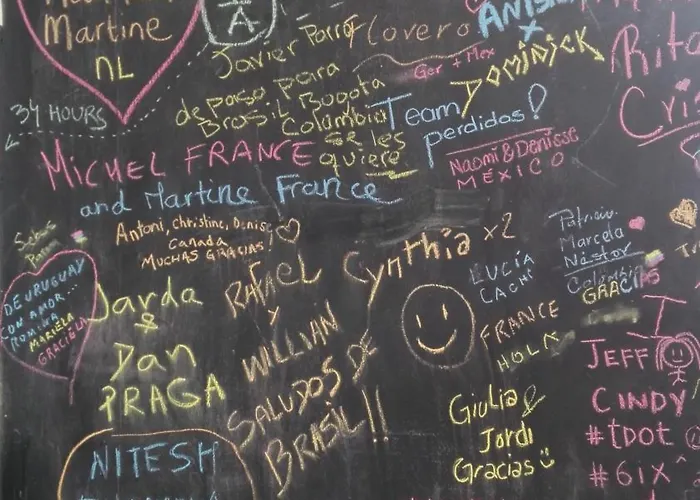 Martine
NL
A
Javier Parra
de paso para
Brasil Bogota
Colombia
se les
quiere
Flovero
Ger + Mex
ANISA
x
DOMINICK
Rita
Cri
34 HOURS
Team
perdidos!
Naomi & Denisse
MÉXICO
MICHEL FRANCE
and Martine France
Antoni, Christine, Denise,
Canada
MUCHAS GRACIAS
DE URUGUAY
CON AMOR...
ROMINA
MARIELA
GRACIELA
Jarda
&
Dan
PRAGA
RAFAEL
y
WILLIAN
SALUDOS DE
BRASIL!!
Cynthia x2
LUCÍA
CACHI
FRANCE
HOLA
Patricia
Marcela
Néstor
Colombia
GRACIAS
Giulia &
Jordi
Gracias
I
JEFF
CINDY
#tDOt
#6ix
NITESH